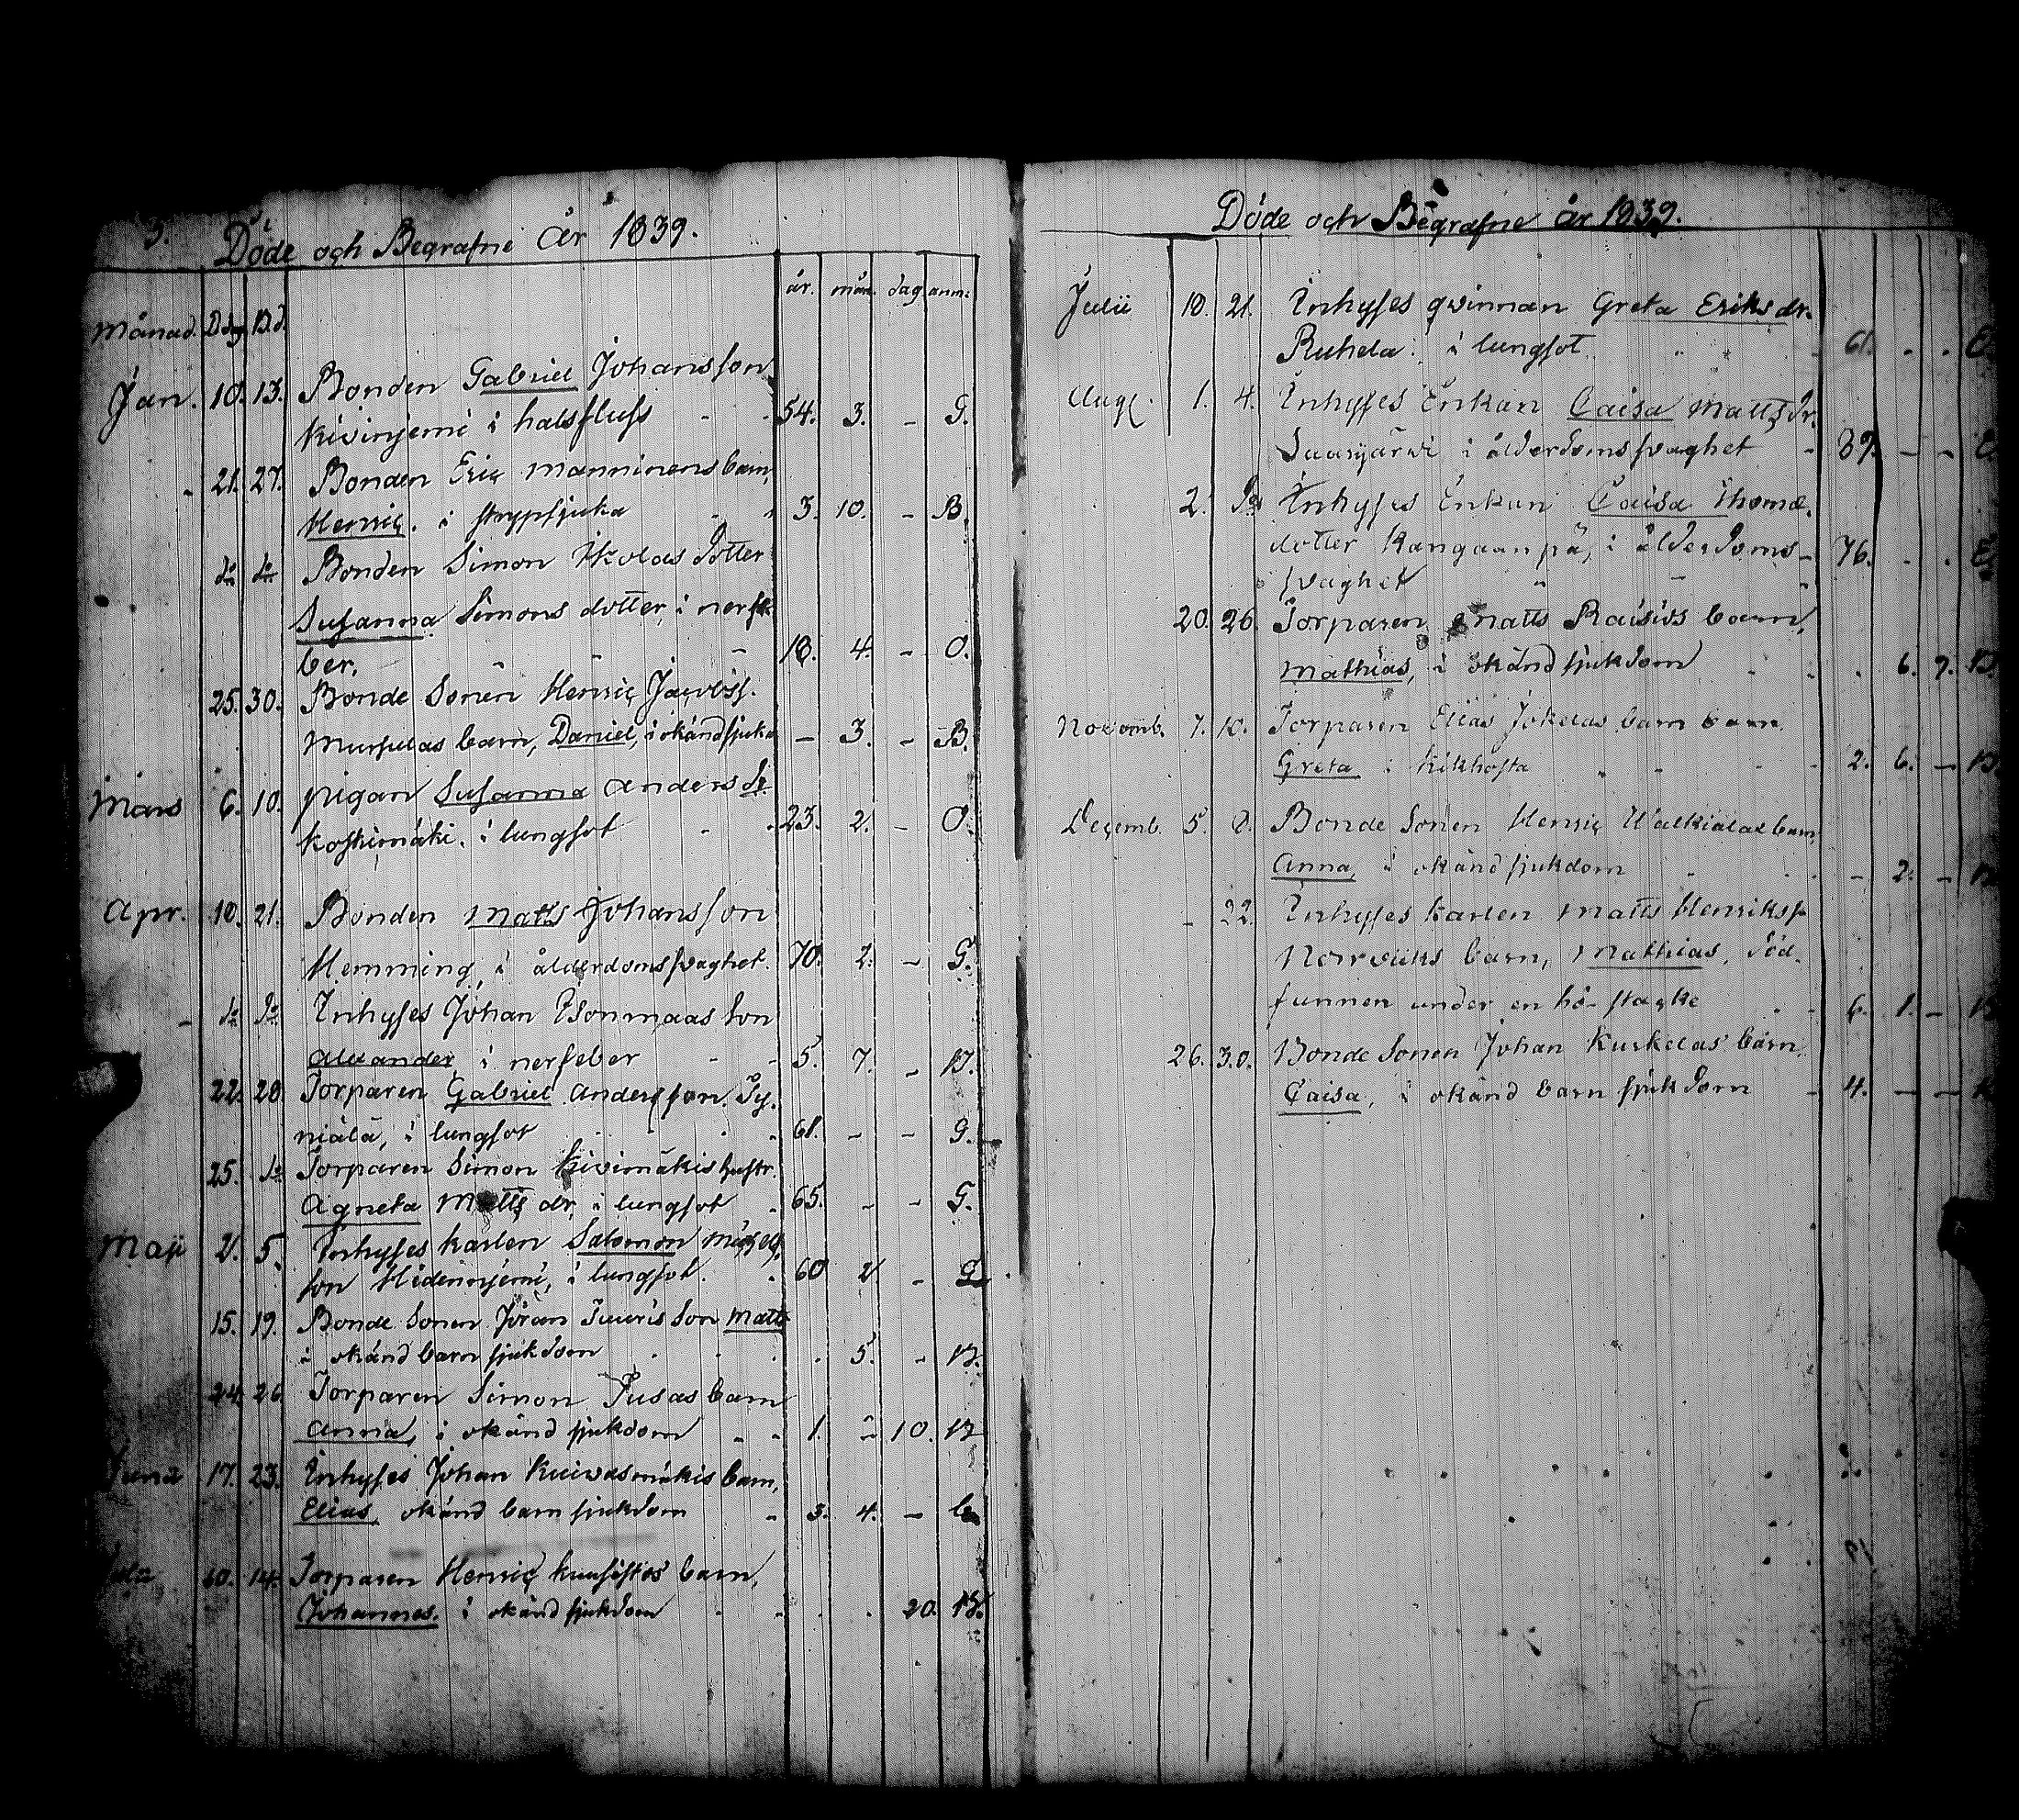 3. Döde och Begrafne År 1839.
Månad. D.dag B.d. år. mån. dag anm.
Jan. 10. 13. Bonden Gabriel Johansson
Kivinjemi i halsfluss - - 54. 3. - G.
- 21. 27. Bonden Eric Manninens barn,
Henric. i strypsjuka - - 3. 10. - B.
do do Bonden Simon Ikolas dotter
Susanna Simons dotter, i nerfe-
ber. - - - 18. 4. - O.
25. 30. Bonde Sonen Henric Jacobss.
barn, Daniel, i okänd sjuka - 3. - B.
Mars 6. 10. pigan Susanna Anders dr.
Koskimäki. i lungsot - - 23. 2. - O.
Apr. 10. 21. Bonden Matts Johansson
Hemming, i ålderdomssvaghet. 70. 2. - G.
- do do Inhyses Johan son
Alexander, i nerfeber - - 5. 7. - B.
22. 28. Torparen Gabriel Andersson. Ty-
niälä, i lungsot - - - 61. - - G.
25. do Torparen Simon Kivimäkis hustr.
Agneta Matts dr, i lungsot - 65. - - G.
Maji 2. 5. Inhyses karlen Salomon Michels
son Hidennjemi, i lungsot. - 60 2 - G
15. 19. Bonde Sonen Jöran Juuris Son Matts
i okänd barn sjukdom . . . . 5. - B.
24. 26 Torparen Simon Pusas barn
Anna, i okänd sjukdom - - 1. - 10. B
17. 23. Inhyses Johan Kuivasmäkis barn,
Elias, okänd barn sjukdom - 3. 4. - B
14. Torparen Henric Kuusistos barn,
Johannes. i okänd sjukdom - - . . 20. B.
Döde och Begrafne år 1839.
Julii 18. 21. Inhyses qvinnan Greta Eriks dr.
Ruhela. i lungsot - 61. . .
Aug. 1. 4. Inhyses Enkan Caisa Matts dr.
Saarijärvi i ålderdomssvaghet - 89. - -
2. do Inhyses Enkan Caisa Thomæ
dotter Kangaanpä, i ålderdoms- 76. . .
svaghet - - -
20. 26. Torparen Matts Raisios barn,
Mathias, i okänd sjukdom - - . 6. 7. B.
Novemb. 7. 10. Torparen Elias Jokelas barn barn
Greta i kikhosta - - - 2. 6. - B.
Decemb. 5. 8. Bonde Sonen Henric Walkialas barn,
Anna, i okänd sjukdom - - 2. - B
- 22. Inhyses karlen Matts Henrikss.
Norrviiks barn, Mathias, död-
funnen under en hö-stacke - - 6. 1. - B
26. 30. Bonde Sonen Johan Kurkelas barn.
Caisa, i okänd barn sjukdom - 4. - -